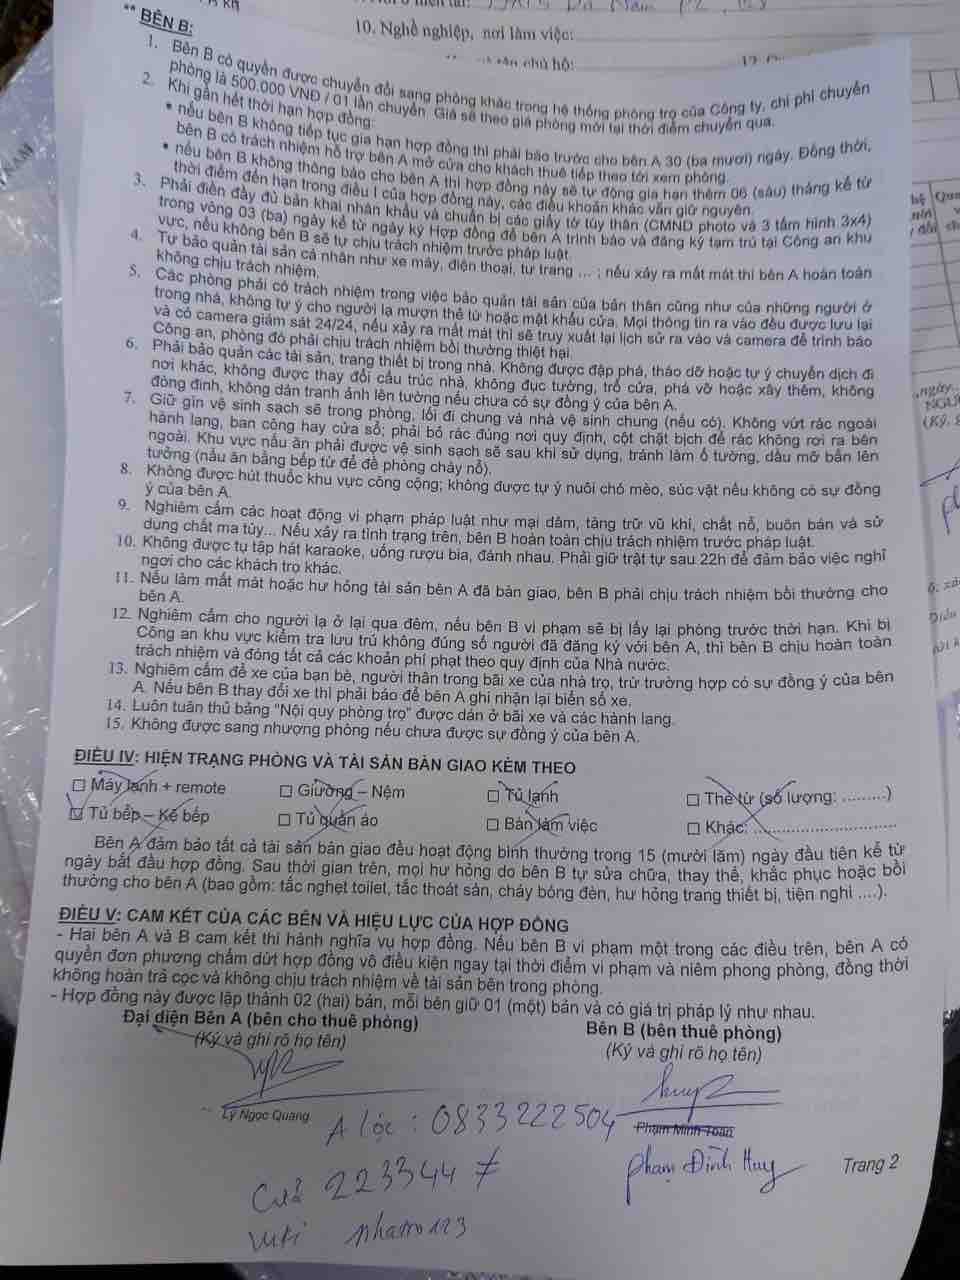 10. Nghề nghiệp, nơi làm việc:
** BÊN B:
1. Bên B có quyền được chuyển đổi sang phòng khác trong hệ thống phòng trọ của Công ty, chi phí chuyển
phòng là 500.000 VNĐ / 01 lần chuyển. Giá sẽ theo giá phòng mới tại thời điểm chuyển qua.
2. Khi gần hết thời hạn hợp đồng:
* nếu bên B không tiếp tục gia hạn hợp đồng thì phải báo trước cho bên A 30 (ba mươi) ngày. Đồng thời,
bên B có trách nhiệm hỗ trợ bên A mở cửa cho khách thuê tiếp theo tới xem phòng.
* nếu bên B không thông báo cho bên A thì hợp đồng này sẽ tự động gia hạn thêm 06 (sáu) tháng kể từ
thời điểm đến hạn trong điều I của hợp đồng này, các điều khoản khác vẫn giữ nguyên.
3. Phải điền đầy đủ bản khai nhân khẩu và chuẩn bị các giấy tờ tùy thân (CMND photo và 3 tấm hình 3x4)
trong vòng 03 (ba) ngày kể từ ngày ký Hợp đồng để bên A trình báo và đăng ký tạm trú tại Công an khu
vực, nếu không bên B sẽ tự chịu trách nhiệm trước pháp luật.
4. Tự bảo quản tài sản cá nhân như xe máy, điện thoại, tư trang ... ; nếu xảy ra mất mát thì bên A hoàn toàn
không chịu trách nhiệm.
5. Các phòng phải có trách nhiệm trong việc bảo quản tài sản của bản thân cũng như của những người ở
trong nhà, không tự ý cho người lạ mượn thẻ từ hoặc mật khẩu cửa. Mọi thông tin ra vào đều được lưu lại
và có camera giám sát 24/24, nếu xảy ra mất mát thì sẽ truy xuất lại lịch sử ra vào và camera để trình báo
Công an, phòng đó phải chịu trách nhiệm bồi thường thiệt hại.
6. Phải bảo quản các tài sản, trang thiết bị trong nhà. Không được đập phá, tháo dỡ hoặc tự ý chuyển dịch đi
nơi khác, không được thay đổi cấu trúc nhà, không đục tường, trổ cửa, phá vỡ hoặc xây thêm, không
đóng đinh, không dán tranh ảnh lên tường nếu chưa có sự đồng ý của bên A.
7. Giữ gìn vệ sinh sạch sẽ trong phòng, lối đi chung và nhà vệ sinh chung (nếu có). Không vứt rác ngoài
hành lang, ban công hay cửa sổ; phải bỏ rác đúng nơi quy định, cột chặt bịch để rác không rơi ra bên
ngoài. Khu vực nấu ăn phải được vệ sinh sạch sẽ sau khi sử dụng, tránh làm ố tường, dầu mỡ bẩn lên
tường (nấu ăn bằng bếp từ để đề phòng cháy nổ).
8. Không được hút thuốc khu vực công cộng; không được tự ý nuôi chó mèo, súc vật nếu không có sự đồng
ý của bên A.
9. Nghiêm cấm các hoạt động vi phạm pháp luật như mại dâm, tàng trữ vũ khí, chất nổ, buôn bán và sử
dụng chất ma túy... Nếu xảy ra tình trạng trên, bên B hoàn toàn chịu trách nhiệm trước pháp luật.
10. Không được tụ tập hát karaoke, uống rượu bia, đánh nhau. Phải giữ trật tự sau 22h để đảm bảo việc nghỉ
ngơi cho các khách trọ khác.
11. Nếu làm mất mát hoặc hư hỏng tài sản bên A đã bàn giao, bên B phải chịu trách nhiệm bồi thường cho
bên A.
12. Nghiêm cấm cho người lạ ở lại qua đêm, nếu bên B vi phạm sẽ bị lấy lại phòng trước thời hạn. Khi bị
Công an khu vực kiểm tra lưu trú không đúng số người đã đăng ký với bên A, thì bên B chịu hoàn toàn
trách nhiệm và đóng tất cả các khoản phí phạt theo quy định của Nhà nước.
13. Nghiêm cấm để xe của bạn bè, người thân trong bãi xe của nhà trọ, trừ trường hợp có sự đồng ý của bên
A. Nếu bên B thay đổi xe thì phải báo để bên A ghi nhận lại biển số xe.
14. Luôn tuân thủ bảng "Nội quy phòng trọ" được dán ở bãi xe và các hành lang.
15. Không được sang nhượng phòng nếu chưa được sự đồng ý của bên A.
ĐIỀU IV: HIỆN TRẠNG PHÒNG VÀ TÀI SẢN BÀN GIAO KÈM THEO
☐ Máy lạnh + remote ☐ Giường – Nệm ☐ Tủ lạnh ☐ Thẻ từ (số lượng: .........)
☑ Tủ bếp – Kệ bếp ☐ Tủ quần áo ☐ Bàn làm việc ☐ Khác: .............................
Bên A đảm bảo tất cả tài sản bàn giao đều hoạt động bình thường trong 15 (mười lăm) ngày đầu tiên kể từ
ngày bắt đầu hợp đồng. Sau thời gian trên, mọi hư hỏng do bên B tự sửa chữa, thay thế, khắc phục hoặc bồi
thường cho bên A (bao gồm: tắc nghẹt toilet, tắc thoát sàn, cháy bóng đèn, hư hỏng trang thiết bị, tiện nghi ....).
ĐIỀU V: CAM KẾT CỦA CÁC BÊN VÀ HIỆU LỰC CỦA HỢP ĐỒNG
- Hai bên A và B cam kết thi hành nghĩa vụ hợp đồng. Nếu bên B vi phạm một trong các điều trên, bên A có
quyền đơn phương chấm dứt hợp đồng vô điều kiện ngay tại thời điểm vi phạm và niêm phong phòng, đồng thời
không hoàn trả cọc và không chịu trách nhiệm về tài sản bên trong phòng.
- Hợp đồng này được lập thành 02 (hai) bản, mỗi bên giữ 01 (một) bản và có giá trị pháp lý như nhau.
Đại diện Bên A (bên cho thuê phòng) Bên B (bên thuê phòng)
(Ký và ghi rõ họ tên) (Ký và ghi rõ họ tên)
Lý Ngọc Quang Phạm Minh Toàn
A lộc : 0833222504
phạm Đình Huy
Trang 2
Cửa 223344 7
wifi nhatro123